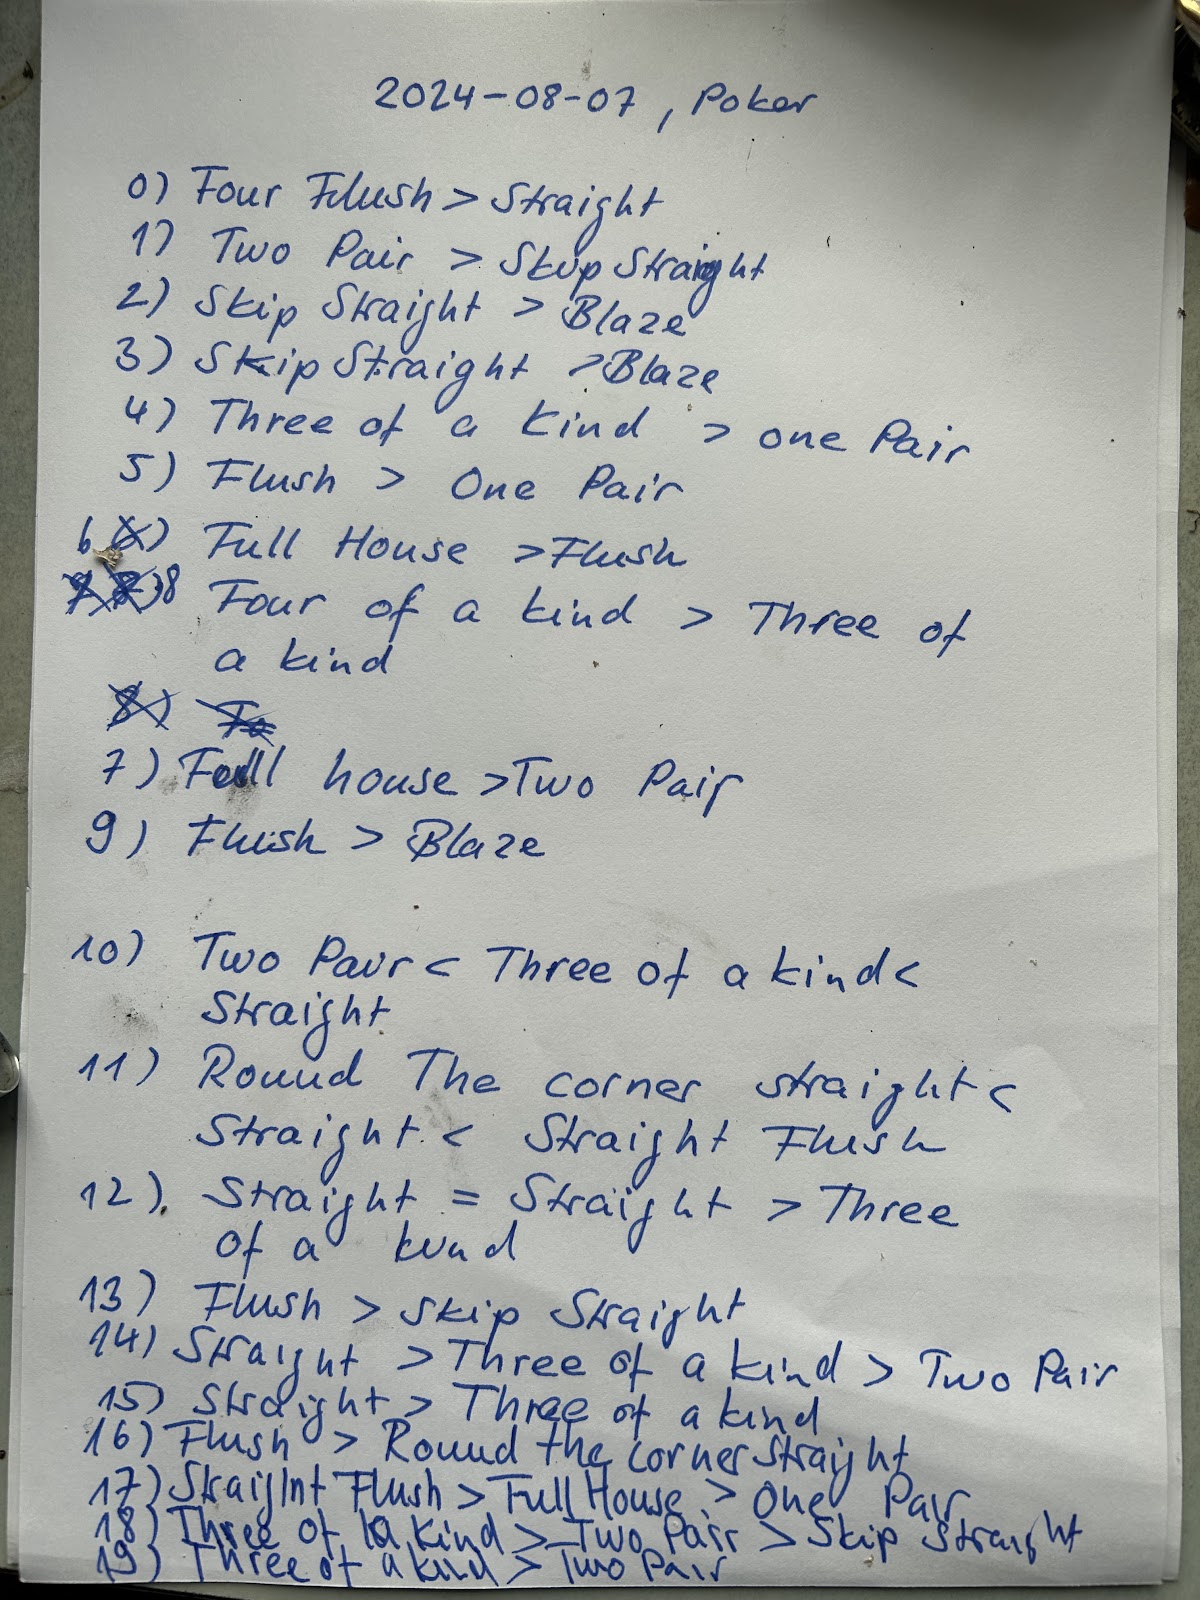 2024-08-07, Poker
0) Four Flush > Straight
1) Two Pair > Skip Straight
2) Skip Straight > Blaze
3) Skip Straight > Blaze
4) Three of a Kind > one Pair
5) Flush > One Pair
6) Full House > Flush
8 Four of a kind > Three of
a kind
7) Full house > Two Pair
9) Flush > Blaze
10) Two Pair < Three of a kind <
Straight
11) Round The corner straight <
Straight < Straight Flush
12) Straight = Straight > Three
of a kind
13) Flush > Skip Straight
14) Straight > Three of a kind > Two Pair
15) Straight > Three of a kind
16) Flush > Round the corner Straight
17) Straight Flush > Full House > One Pair
18) Three of a kind > Two Pair > Skip Straight
19) Three of a kind > Two Pair